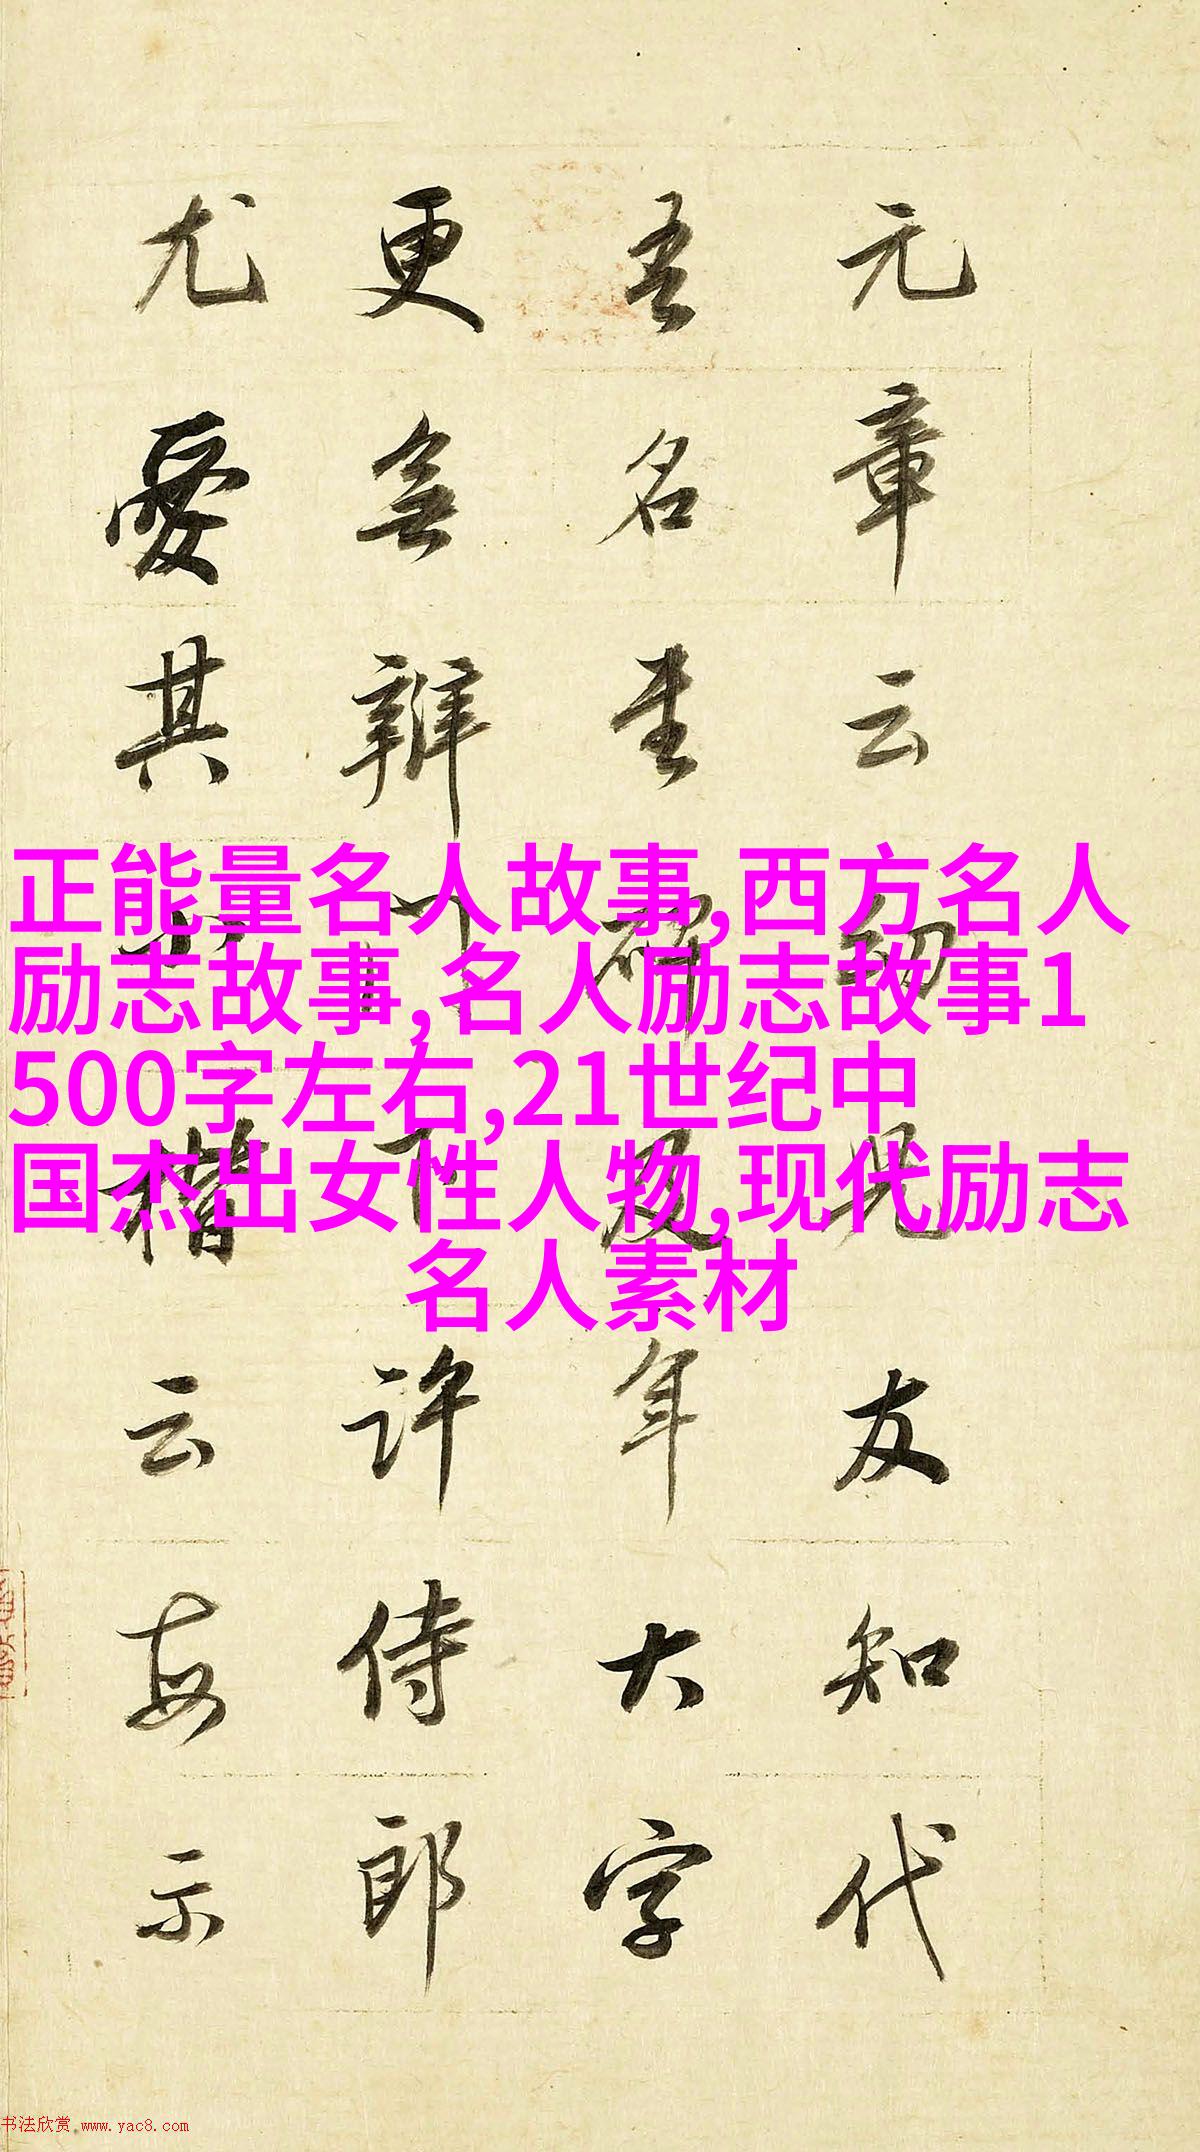 元章云幼兒友知代
吾名書碑及手大字
更無辨門下許侍郎
尤愛其小楷云每示
正能量名人故事,西方名人
励志故事,名人励志故事1
500字左右,21世纪中
国杰出女性人物,现代励志
名人素材
书法欣赏.www.yac8.com